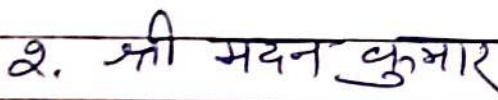 २. श्री मदन कुमार